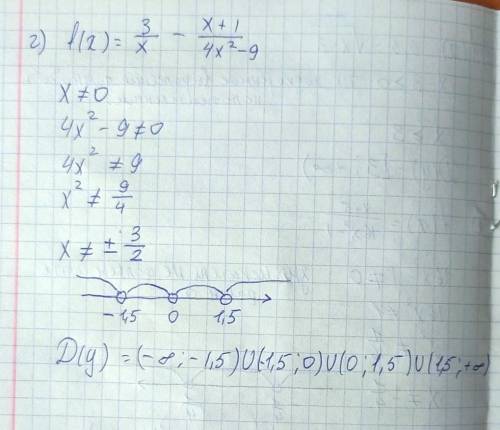 г) f(2) = 3/x - x+1/4x²-9
x ≠ 0
4x² - 9 ≠ 0
4x² ≠ 9
x² ≠ 9/4
x ≠ ± 3/2
-1,5 0 1,5
D(y) = (-∞; -1,5) U (-1,5; 0) U (0; 1,5) U (1,5; +∞)